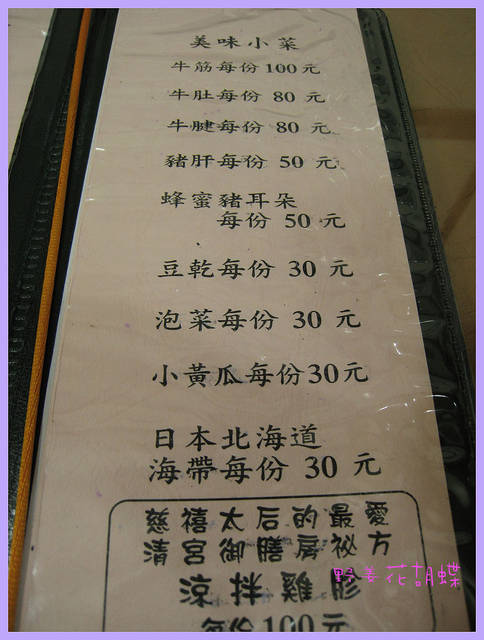 美味小菜
牛筋每份100元
牛肚每份 80 元
牛腱每份 80 元
豬肝每份 50 元
蜂蜜豬耳朵
每份 50 元
豆乾每份 30 元
泡菜每份 30 元
小黃瓜每份30元
日本北海道
海帶每份 30 元
慈禧太后的最愛
清宮御膳房祕方
涼拌雞胗
每份100元
野姜花胡蝶